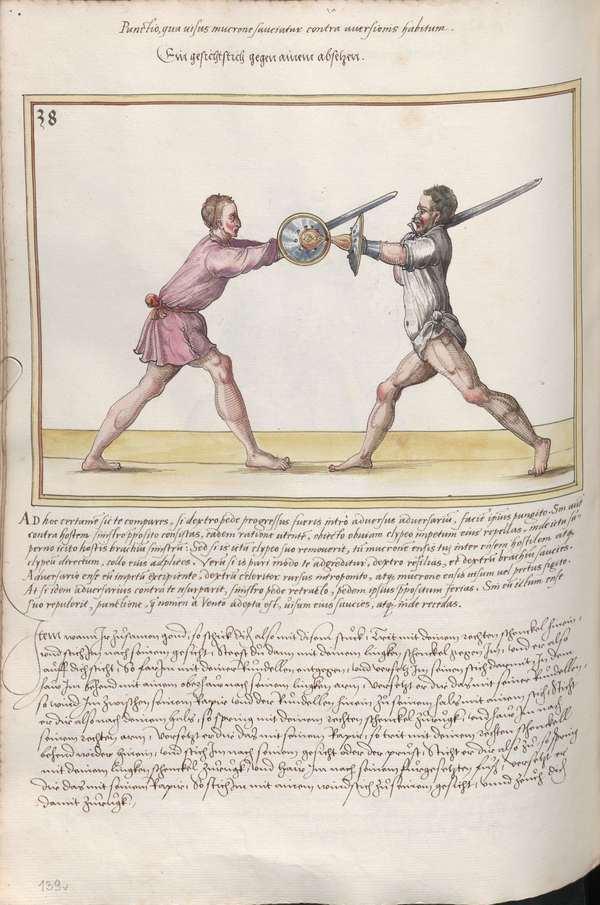 Punctio, qua visus mucrone sauciatur contra aversionis habitum.
Ein gesichtstich gegen ainem absetzen.
38
AD hoc certamē sic te compares, si dextro pede progressus fueris intro adversus adversariū, faciē ipsius pungito. Sin aūt
contra hostem sinistro p̄posito consistas, eadem ratione utentē, obiecto obviam clypeo impetum eius repellas, inde ictu su=
perno icito hostis brachiū sinistrū. Sed si is ictū clypeo suo removerit, tu mucronē ensis tui inter ensem hostilem atq;
clypeū directum, collo eius adplices. Verū si is pari modo te adgreditur, dextro resilias, et dextrū brachiū saucies.
Adversario ense eū impetū excipiente, dextrū celeriter rursus introponito, atq; mucrone ensis visum vel pectus figito.
At si idem adversarius contra te usurparit, sinistro pede retracto, pedem ipsius p̄positum ferias. Sin eū ictum ense
suo repulerit, punctione, q̄ nomen à vento adepta est, visum eius saucies, atq; inde recedas.
Item wann Ir zusamen gond, so schick dich also mit disem stuck, Trit mit deinem rechten schenckel hinein,
und stich Im nach seinem gesicht, Steest du dann mit deinem lingken schenckel gegen Im, und er also
auff dich sticht, So far Im mit deiner Rundellen entgegen, und versetz Im seinen stich darmit, In dem
haw Im behend mit ainem oberhaw nach seinem lingken arm, versetzt er dir das mit seiner Rundellen,
so wind Im zwischen seinem Rapir und der Rundellen hinein zu seinem hals mit ainem stich, Sticht
er dir also nach deinem hals, so spring mit deinem rechten schenckel zuruck, und haw Im nach
seinem rechten arm, versetzt er dir das mit seinem Rapir, so trit mit deinem rechten schenckell
behend wider hinein, und stich Im nach seinem gesicht oder der prust, Sticht er dir also zu, so spring
mit deinem lingken schenckel zuruck, und haw Im nach seinem furgesetzten fuß, versetzt er
dir das mit seinem Rapir, So stich Im mit ainem windstich zu seinem gesicht, unnd zeuch dich
damit zuruck.
139v